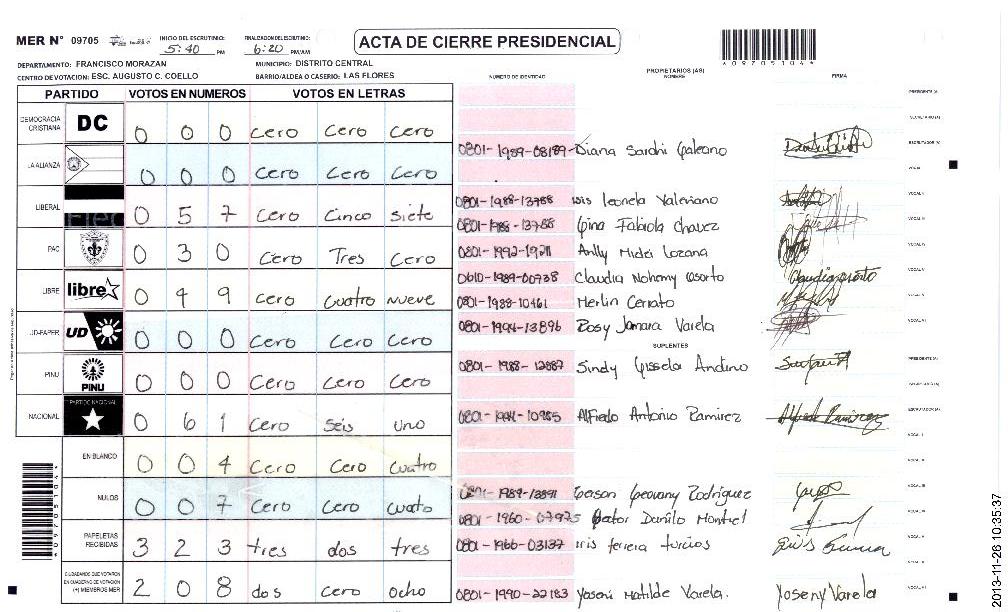 MER N° 09705
INICIO DEL ESCRUTINIO: 5:40 PM
FINALIZACION DEL ESCRUTINIO: 6:20 PM/AM
ACTA DE CIERRE PRESIDENCIAL
*09705104*
DEPARTAMENTO: FRANCISCO MORAZAN
MUNICIPIO: DISTRITO CENTRAL
CENTRO DE VOTACION: ESC. AUGUSTO C. COELLO
BARRIO/ALDEA O CASERIO: LAS FLORES
NUMERO DE IDENTIDAD
PROPIETARIOS (AS)
NOMBRE
FIRMA
PARTIDO VOTOS EN NUMEROS VOTOS EN LETRAS
DEMOCRACIA CRISTIANA DC 0 0 0 cero cero cero
LA ALIANZA 0 0 0 cero cero cero
LIBERAL 0 5 7 cero cinco siete
PAC 0 3 0 cero Tres cero
LIBRE libre 0 4 9 cero cuatro nueve
UD-FAPER UD 0 0 0 cero cero cero
PINU PINU 0 0 0 cero cero cero
NACIONAL PARTIDO NACIONAL 0 6 1 cero seis uno
EN BLANCO 0 0 4 cero cero cuatro
NULOS 0 0 7 cero cero cuato
PAPELETAS RECIBIDAS 3 2 3 tres dos tres
CIUDADANOS QUE VOTARON EN CUADERNO DE VOTACION (+) MIEMBROS MER 2 0 8 dos cero ocho
PRESIDENTE (A)
SECRETARIO (A)
0801-1989-08189 Diana Sarahi Galeano ESCRUTADOR (A)
VOCAL I
0801-1988-13788 Isis Leonela Valeriano VOCAL II
0801-1988-13788 Gina Fabiola Chavez VOCAL III
0801-1992-19211 Anlly Lozano VOCAL IV
0610-1989-00738 Claudia Nohemy Osorto VOCAL V
0801-1988-10461 Merlin Cerrato
0801-1994-13896 Rosy Jamara Varela
SUPLENTES
0801-1988-12887 Sindy Gissela Andino PRESIDENTE (A)
0801-1941-10985 Alfredo Antonio Ramirez Alfredo Ramirez ESCRUTADOR (A)
VOCAL I
0801-1989-13891 Gerson Geovany Rodríguez
0801-1960-07975 Danilo Montiel
0801-1966-03137 Iris ferrera turcios
0801-1990-22183 Yoseni Matilde Varela. Yoseny Varela
*09705104*
2013-11-26 10:35:37